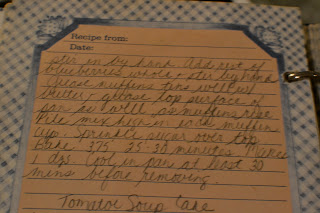 Recipe from:
Date:
ster in by hand. Add rest of
blueberries whole & ster by hand
Grease muffins tins well w/
butter, grease top surface of
pan as well as muffins rise
Pile mix high in the muffin
cup. Sprinkle sugar over top
Bake 375, 25-30 minutes. Makes
1 doz. Cool in pan at least 30
mins before removing.
Tomatoe Soup Cake